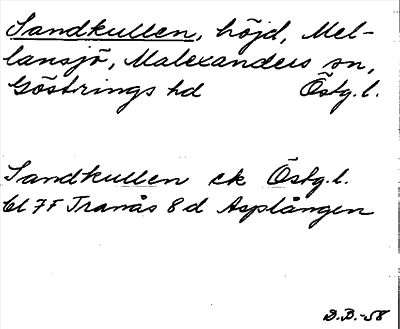 Sandkullen, höjd, Mel-
lansjö, Malexanders sn,
Göstrings hd Östg.l.
Sandkullen ek Östg.l.
bl 7F Tranås 8d Asplången
D.B.-58